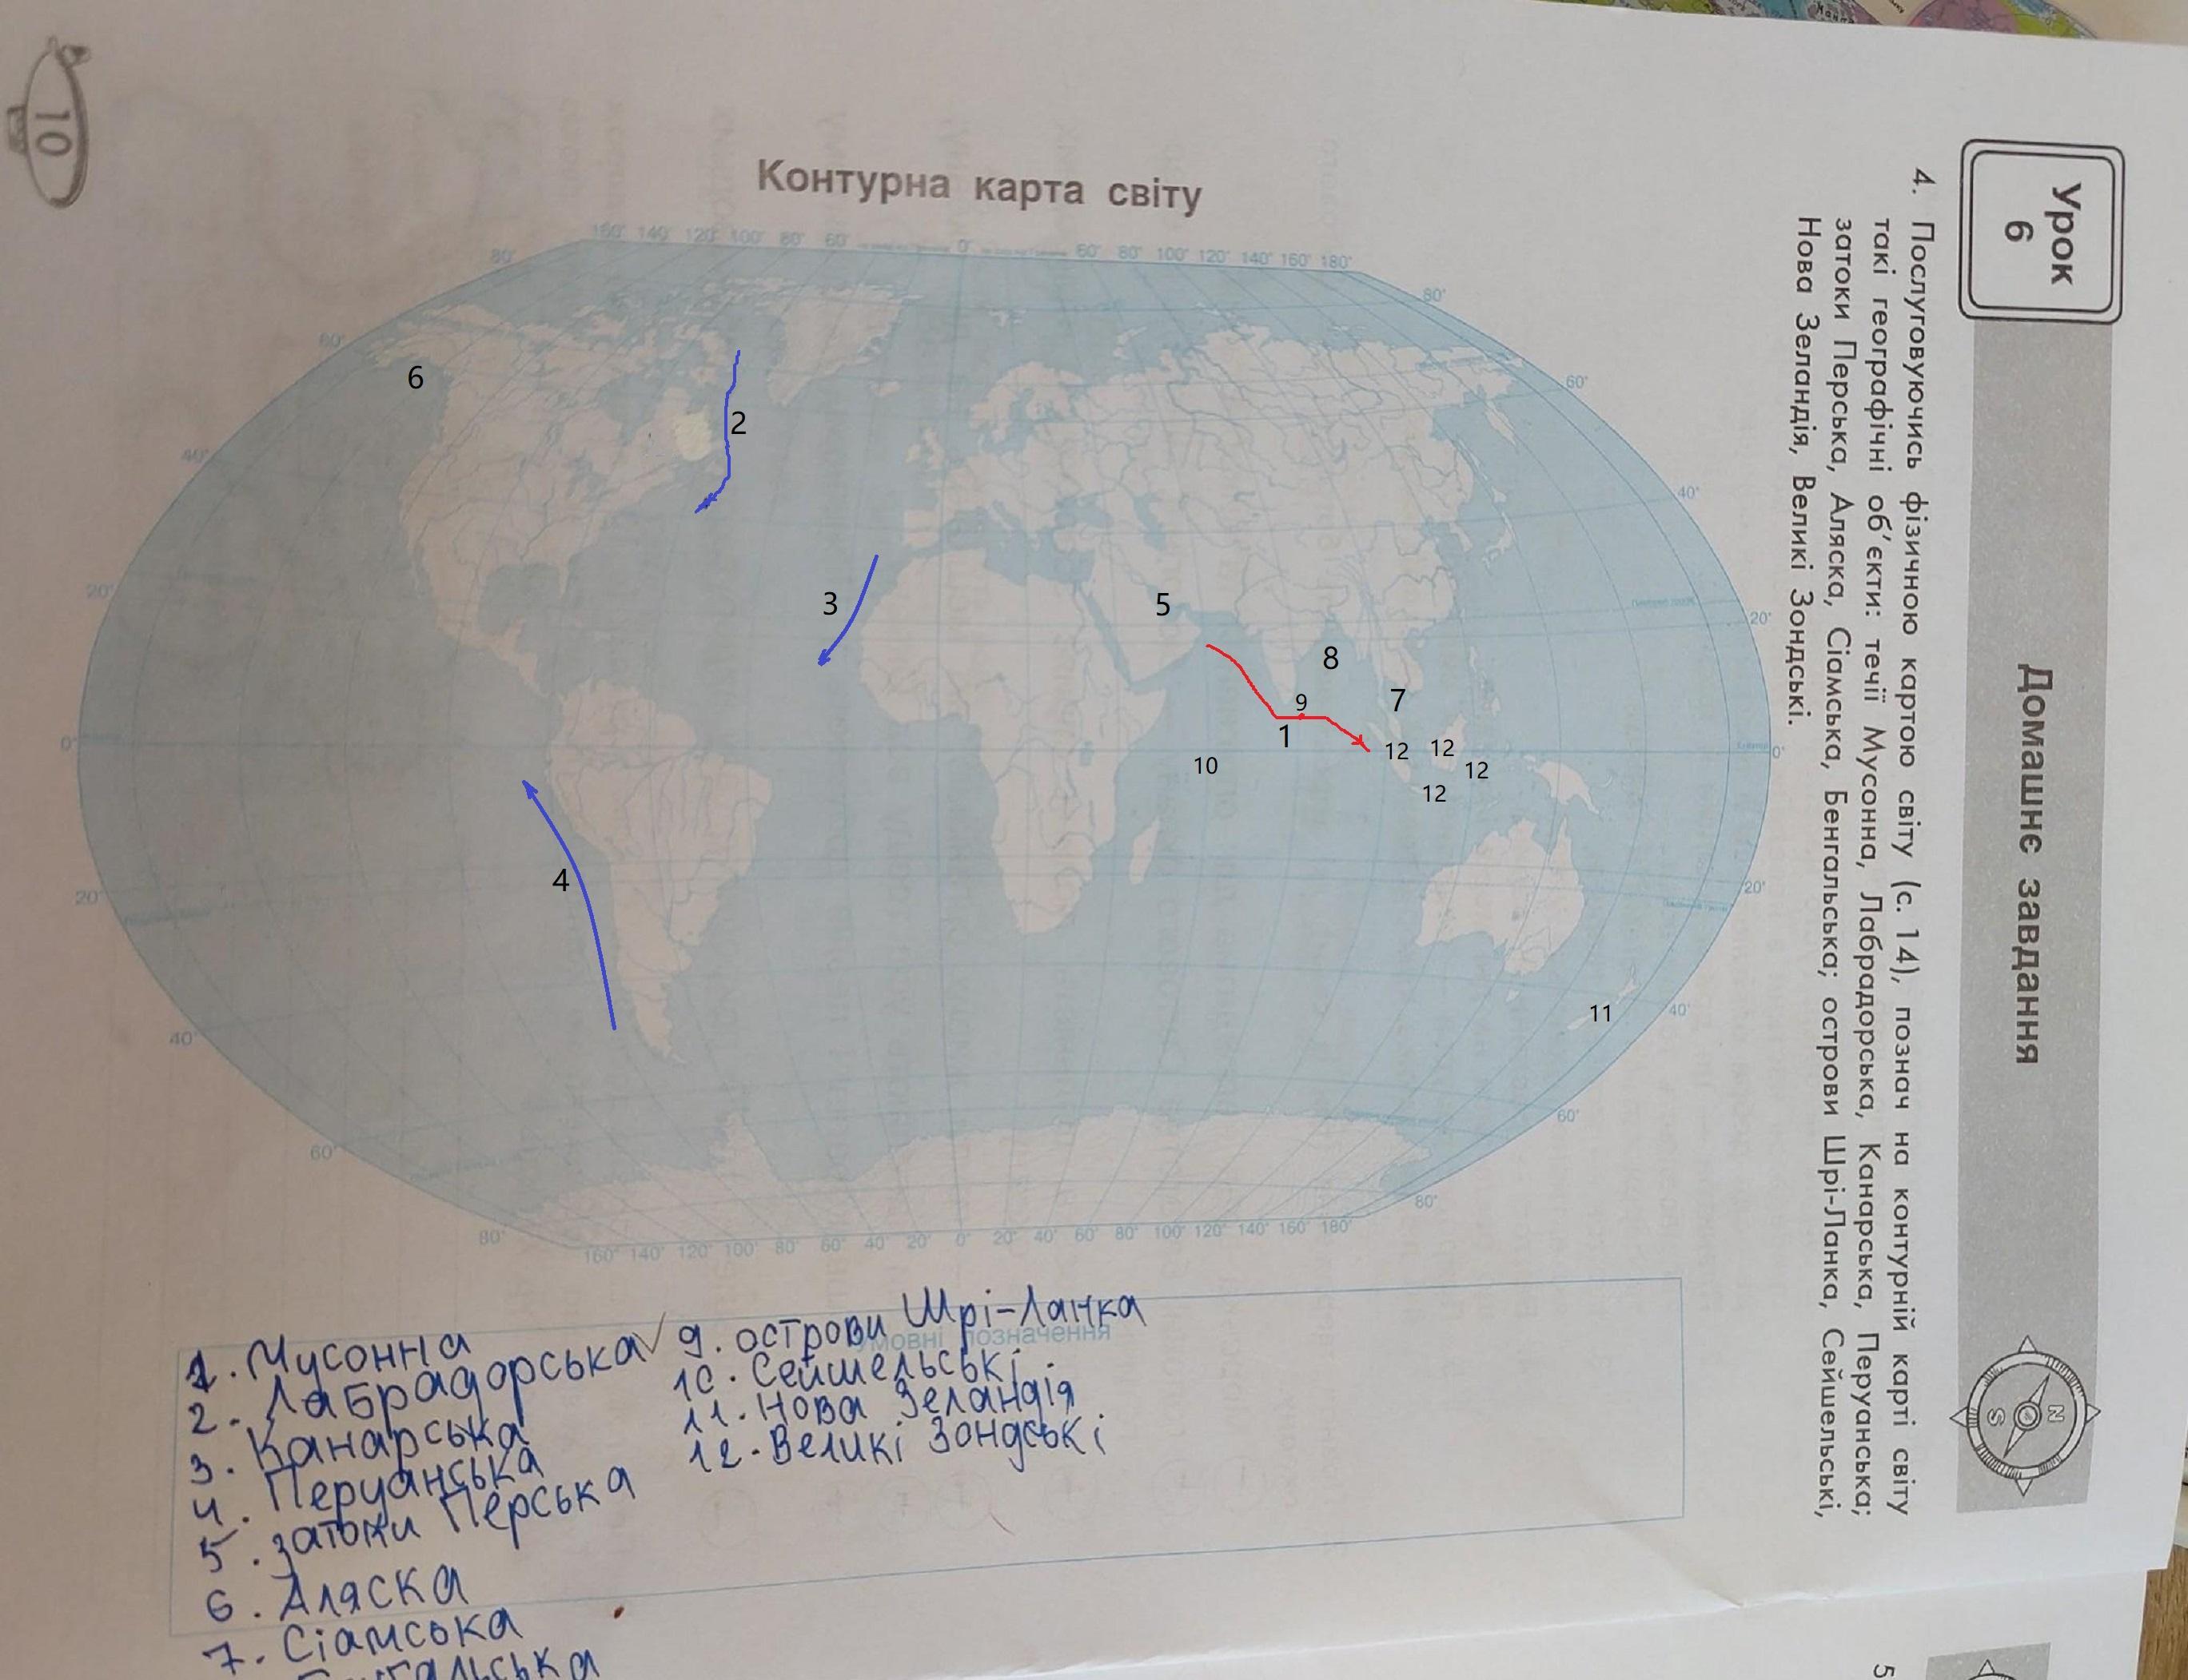 Урок
6
Домашнє завдання
N
S
4. Послуговуючись фізичною картою світу (с. 14), познач на контурній карті світу
такі географічні об’єкти: течії Мусонна, Лабрадорська, Канарська, Перуанська;
затоки Перська, Аляска, Сіамська, Бенгальська; острови Шрі-Ланка, Сейшельські,
Нова Зеландія, Великі Зондські.
Контурна карта світу
160° 140° 120° 100° 80° 60° 0° 60° 80° 100° 120° 140° 160° 180°
80° 80°
60° 60°
6
2
40° 40°
3
5
20° 20°
8
7
9
1
0° 0°
12 12
10
12
12
4
20° 20°
11
40° 40°
60° 60°
80° 80°
160° 140° 120° 100° 80° 60° 40° 20° 0° 20° 40° 60° 80° 100° 120° 140° 160° 180°
Умовні позначення
1. Мусонна
2. Лабрадорська
3. Канарська
4. Перуанська
5. затоки Перська
6. Аляска
7. Сіамська
9. острови Шрі-Ланка
10. Сейшельські
11. Нова Зеландія
12. Великі Зондські
10
5